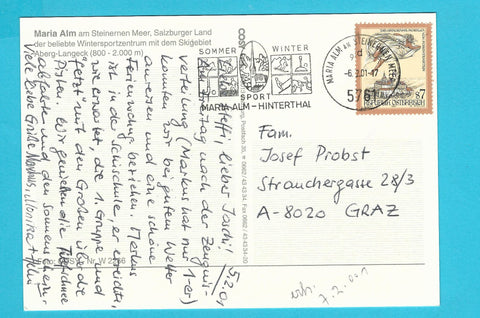 Maria Alm am Steinernen Meer, Salzburger Land
der beliebte Wintersportzentrum mit dem Skigebiet
Aberg-Langeck (800 - 2.000 m)
SOMMER WINTER
SPORT
MARIA ALM - HINTERTHAL
MARIA ALM AM STEINERNEN MEER
5761
REPUBLIK ÖSTERREICH
S 7
5.2.01
lieber Joschi!
Am Freitag nach der Zeugnis-
verteilung (Markus hat nur 1-er)
konnten wir bei gutem Wetter
anreisen und eine schöne
Ferienwohng. beziehen. Markus
ist in der Schischule, er
die 1. Gruppe und
jetzt mit den Großen über die
Pisten. Wir genießen die
abseits und den Sonnenschein.
Viele liebe Grüße
Fam.
Josef Probst
Strauchergasse 28/3
A-8020 GRAZ
7.2.001